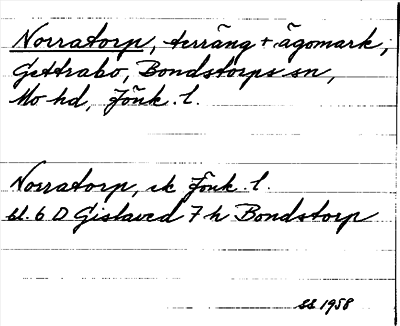 Norratorp, terräng + ägomark,
Gettrabo, Bondstorps sn,
Mo hd, Jönk. l.
Norratorp, ek Jönk. l.
bl. 6 D Gislaved 7 h Bondstorp
SS 1958